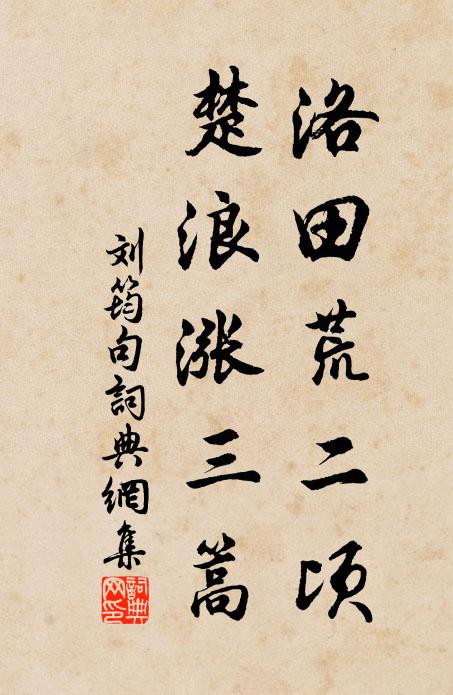 洛田荒二顷
楚浪涨三篙
刘筠句詞典網集
詞典网印